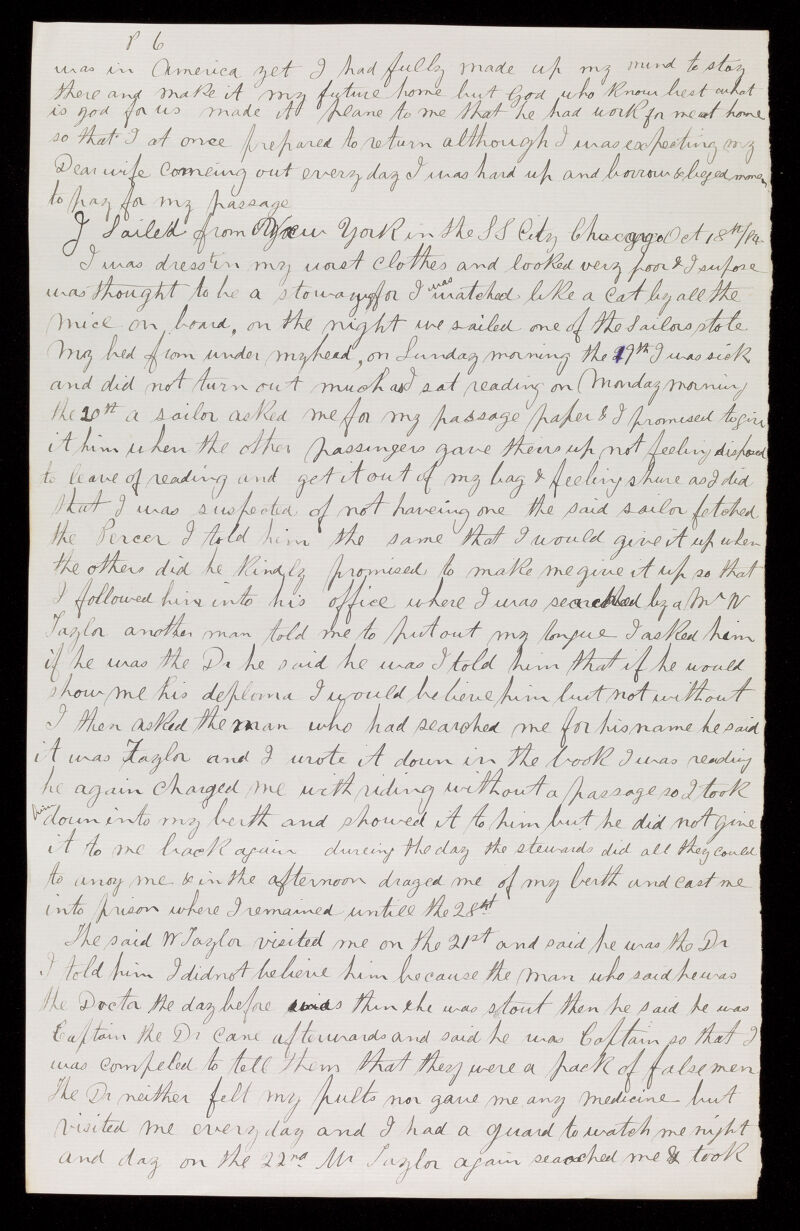 P 6
was in America yet I had fully made up my mind to stay
there and make it my future home but God who know best what
is god for us made it plane to me that he had work for me at home
so that I at once prepared to return although I was expecting my
Dear wife comeing out every day I was hard up and borrow & beged money
to pay for my passage
I Sailed from New York in the SS City Chicargo Oct 18th/84
I was dresst in my worst clothes and looked very poor & I supose
was thought to be a stowaway for I was watched like a cat by all the
mice on board, on the night we sailed one of the Sailors stole
my bed from under my head, on Sunday morning the 19th I was sick
and did not turn out much and I sat reading on Monday morning
the 20st a sailor asked me for my passage paper & I promised to give
it him when the other passingers gave theirs up not feeling disposed
to leave of reading and get it out of my bag & feeling shure as I did
that I was suspected of not haveing one the said sailor fetched
the Percer I told him the same that I would give it up when
the others did he kindly promised to make me give it up so that
I followed him into his office where I was searched by a Mr W
Taylor another man told me to put out my tongue I asked him
if he was the Dr he said he was I told him that if he would
show me his deploma I would believe him but not without
I then asked the man who had searched me for his name he said
it was Taylor and I wrote it down in the book I was reading
he again charged me with riding without a passage so I took
him down into my berth and showed it to him but he did not give
it to me back again dureing the day the stewards did all they could
to anoy me & in the afternoon draged me of my berth and cast me
into prison where I remained untill the 28st
The said W Taylor visited me on the 21st and said he was the Dr
I told him I did not believe him because the man who said he was
the Docter the day before was thin & he was stout then he said he was
Captain the Dr cane afterwards and said he was Captain so that I
was compeled to tell them that they were a pack of false men
The Dr neither felt my pults nor gave me any medicine but
visited me every day and I had a guard to watch me night
and day on the 22nd Mr Taylor again searched me & took